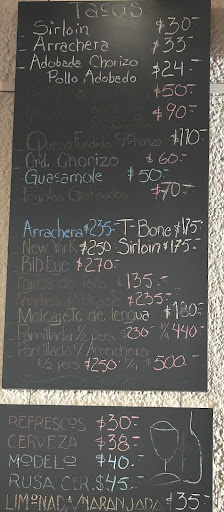 TACOS
- Sirloin $30.-
- Arrachera $33.-
- Adobada Chorizo
Pollo Adobado $24.-
$50.-
$90.-
- Queso Fundido c/Chorizo $110.-
- Ord. Chorizo $60.-
- Guacamole $50.-
- Frijoles $70.-
Arrachera $235.- T-Bone $175.-
New York $250.- Sirloin $175.-
- RIB Eye $270.-
- 135.-
- Arrachera $235.-
- Molcajete de lengua $180.-
- Parrillada 1/2 pers. $230.- 440.-
- Parrillada c/ Arrachera
1/2 pers $250.- $500.-
REFRESCOS $30.-
CERVEZA $38.-
MODELO $40.-
RUSA CER. $45.-
LIMONADA/NARANJADA $35.-